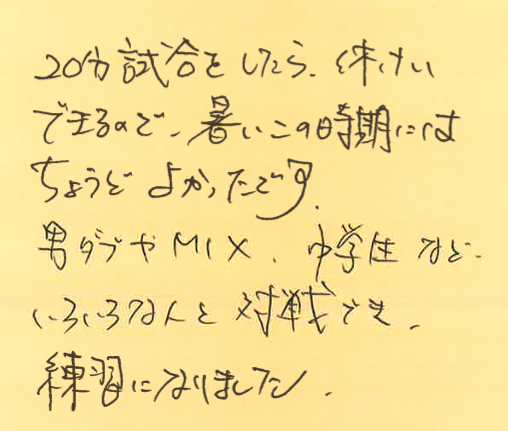 20分試合をしたら、休けい
できるので、暑いこの時期には
ちょうどよかったです。
男ダブやMIX、中学生など、
いろいろな人と対戦でき、
練習になりました。